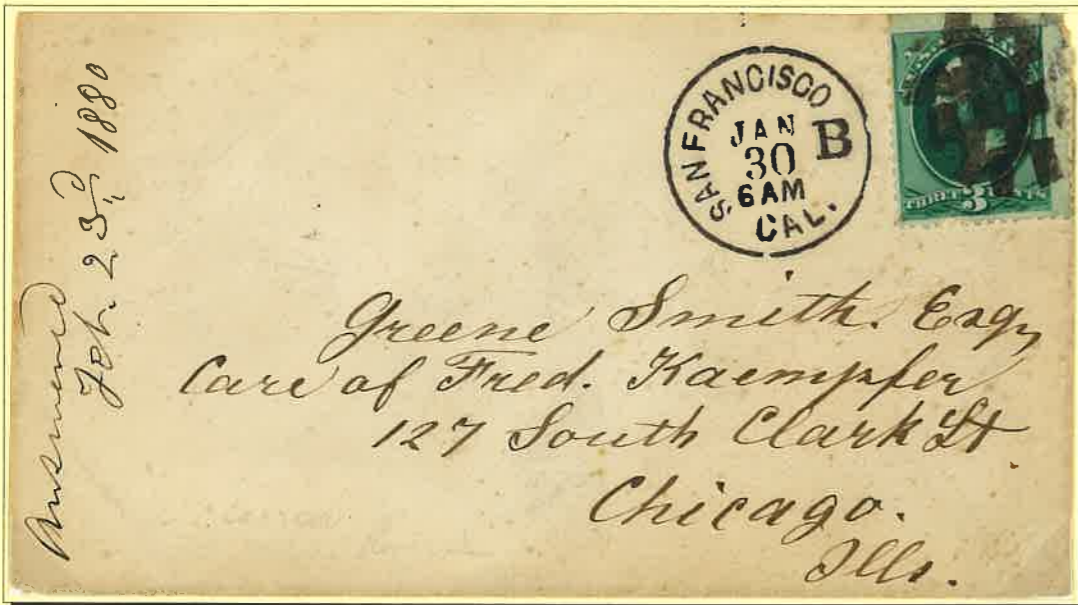 Answered
Feb. 23rd 1880
SAN FRANCISCO
JAN
30
6 AM
B
CAL.
3
Greene Smith. Esq,
Care of Fred. Kaempfer
127 South Clark St
Chicago.
Ills.